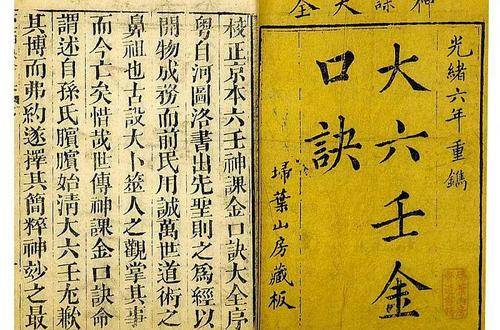 神課大全
光緒六年重鐫
大六壬金
口訣
掃葉山房藏板
校正京本六壬神課金口訣大全序
粵自河圖洛書出先聖則之為經以
開物成務而前民用誠萬世道術之
鼻祖也古設大卜簭人之觀掌其事
而今亡矣惜哉世傳神課金口訣命
謂述自孫氏臏臏始清大六壬尢歉
其博而弗約遂擇其簡粹神妙之最